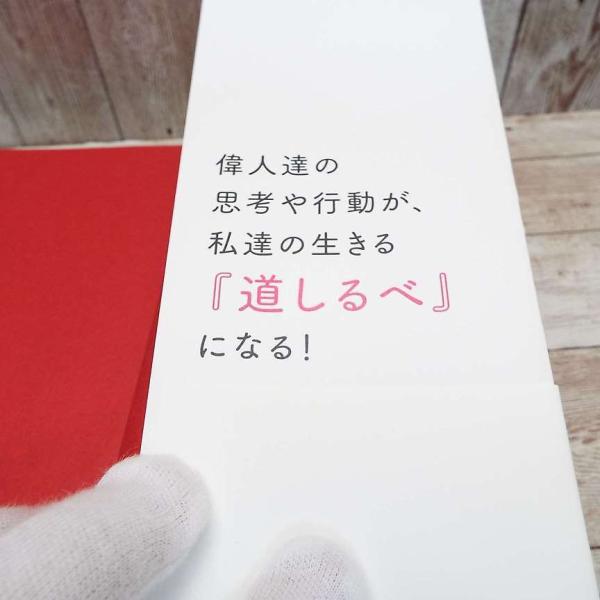 偉人達の
思考や行動が、
私達の生きる
『道しるべ』
になる!